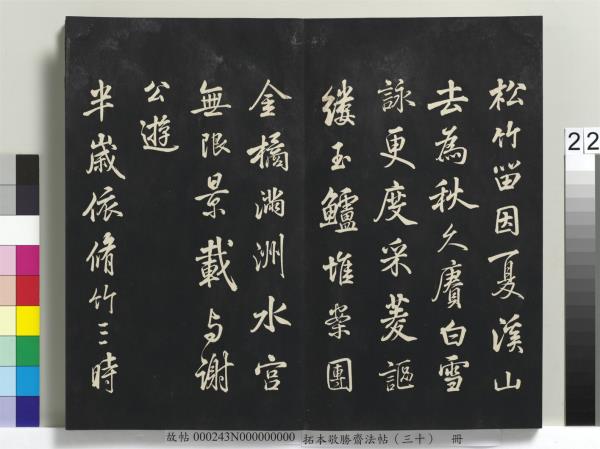 松竹留因夏溪山
去為秋久賡白雪
詠更度采菱謳
縷玉鱸堆案團
金橘滿洲水宮
無限景載与謝
公遊
半嵗依脩竹三時
22
故帖 000243N000000000 拓本敬勝齋法帖（三十） 冊